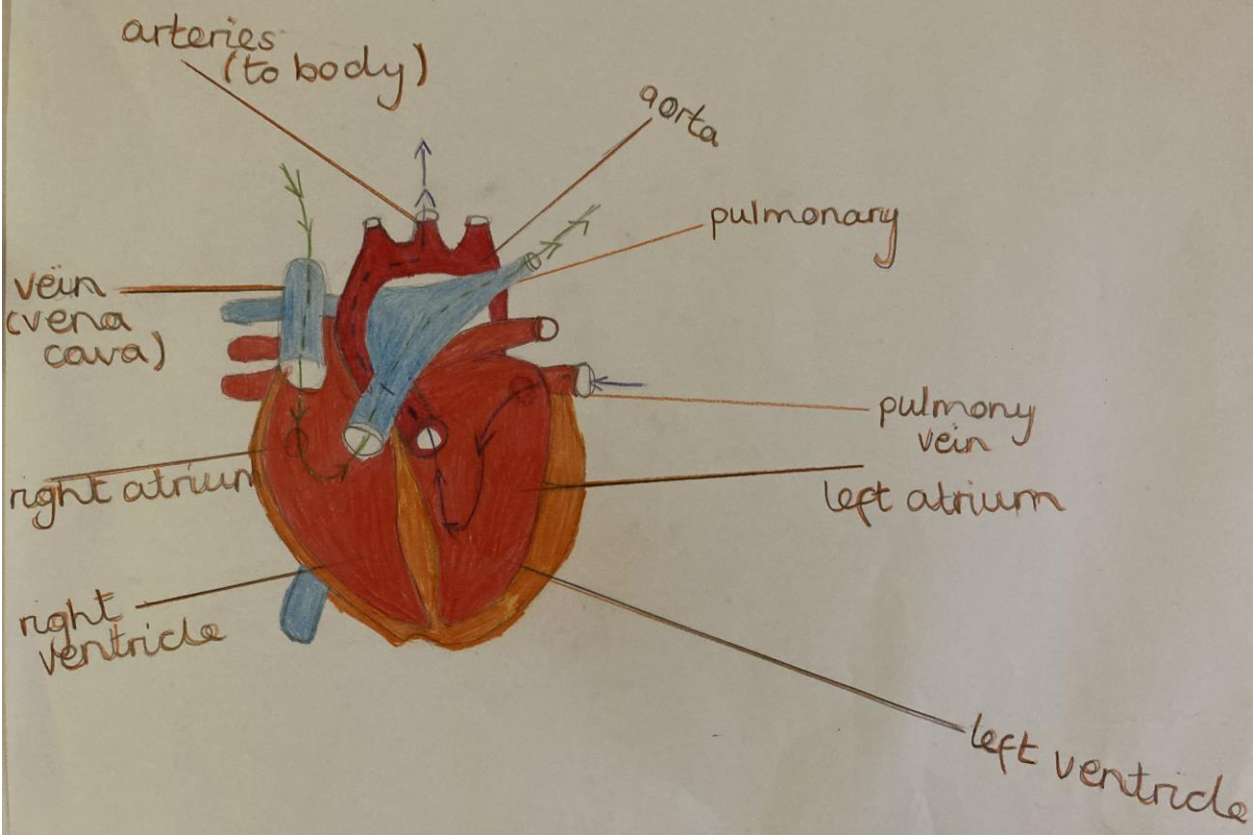 arteries
(to body)
aorta
pulmonary
vein
(vena
cava)
pulmony
vein
right atrium
left atrium
right
ventricle
left ventricle